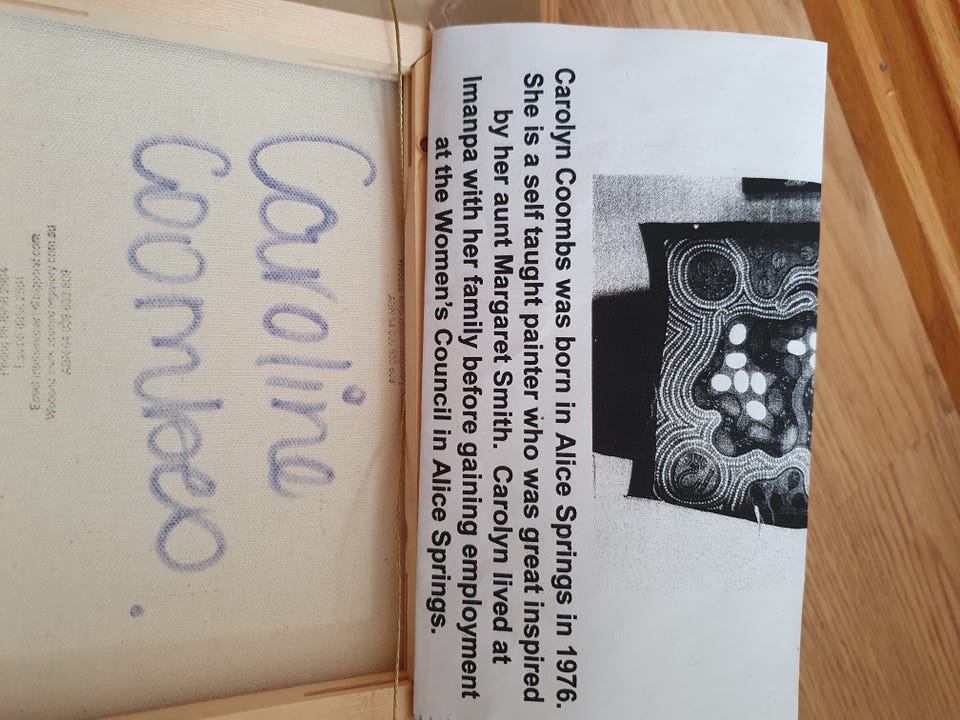 Carolyn Coombs was born in Alice Springs in 1976.
She is a self taught painter who was great inspired
by her aunt Margaret Smith. Carolyn lived at
Imanpa with her family before gaining employment
at the Women's Council in Alice Springs.
Caroline
Coombeo.